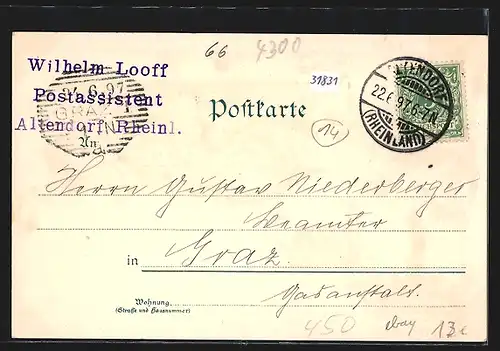 66 4300
Wilhelm Looff
Postassistent
Altendorf Rheinl.
24.6.97
GRAZ
31831
Postkarte
14
ALTENDORF
22.6.97.6-7N.
(RHEINLAND)
Herrn Gustav Niederberger
Beamter
in Graz.
Gasanstalt.
Wohnung.
(Straße und Hausnummer)
450 ebay 13e